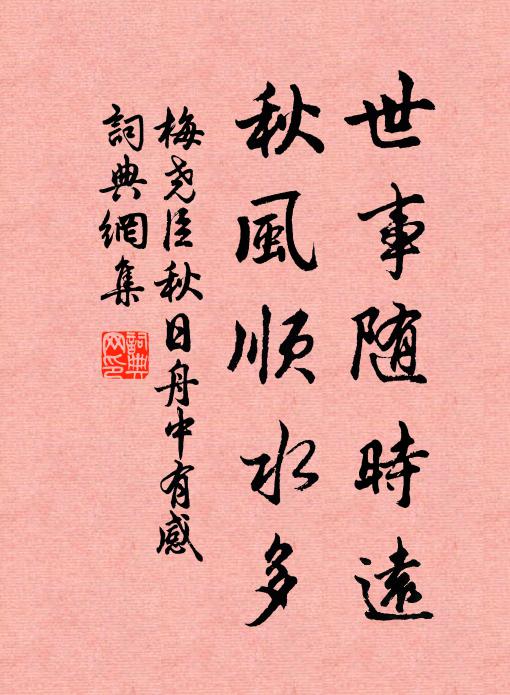 世事随時遠
秋風順水多
梅尧臣秋日舟中有感
詞典網集
詞典網印